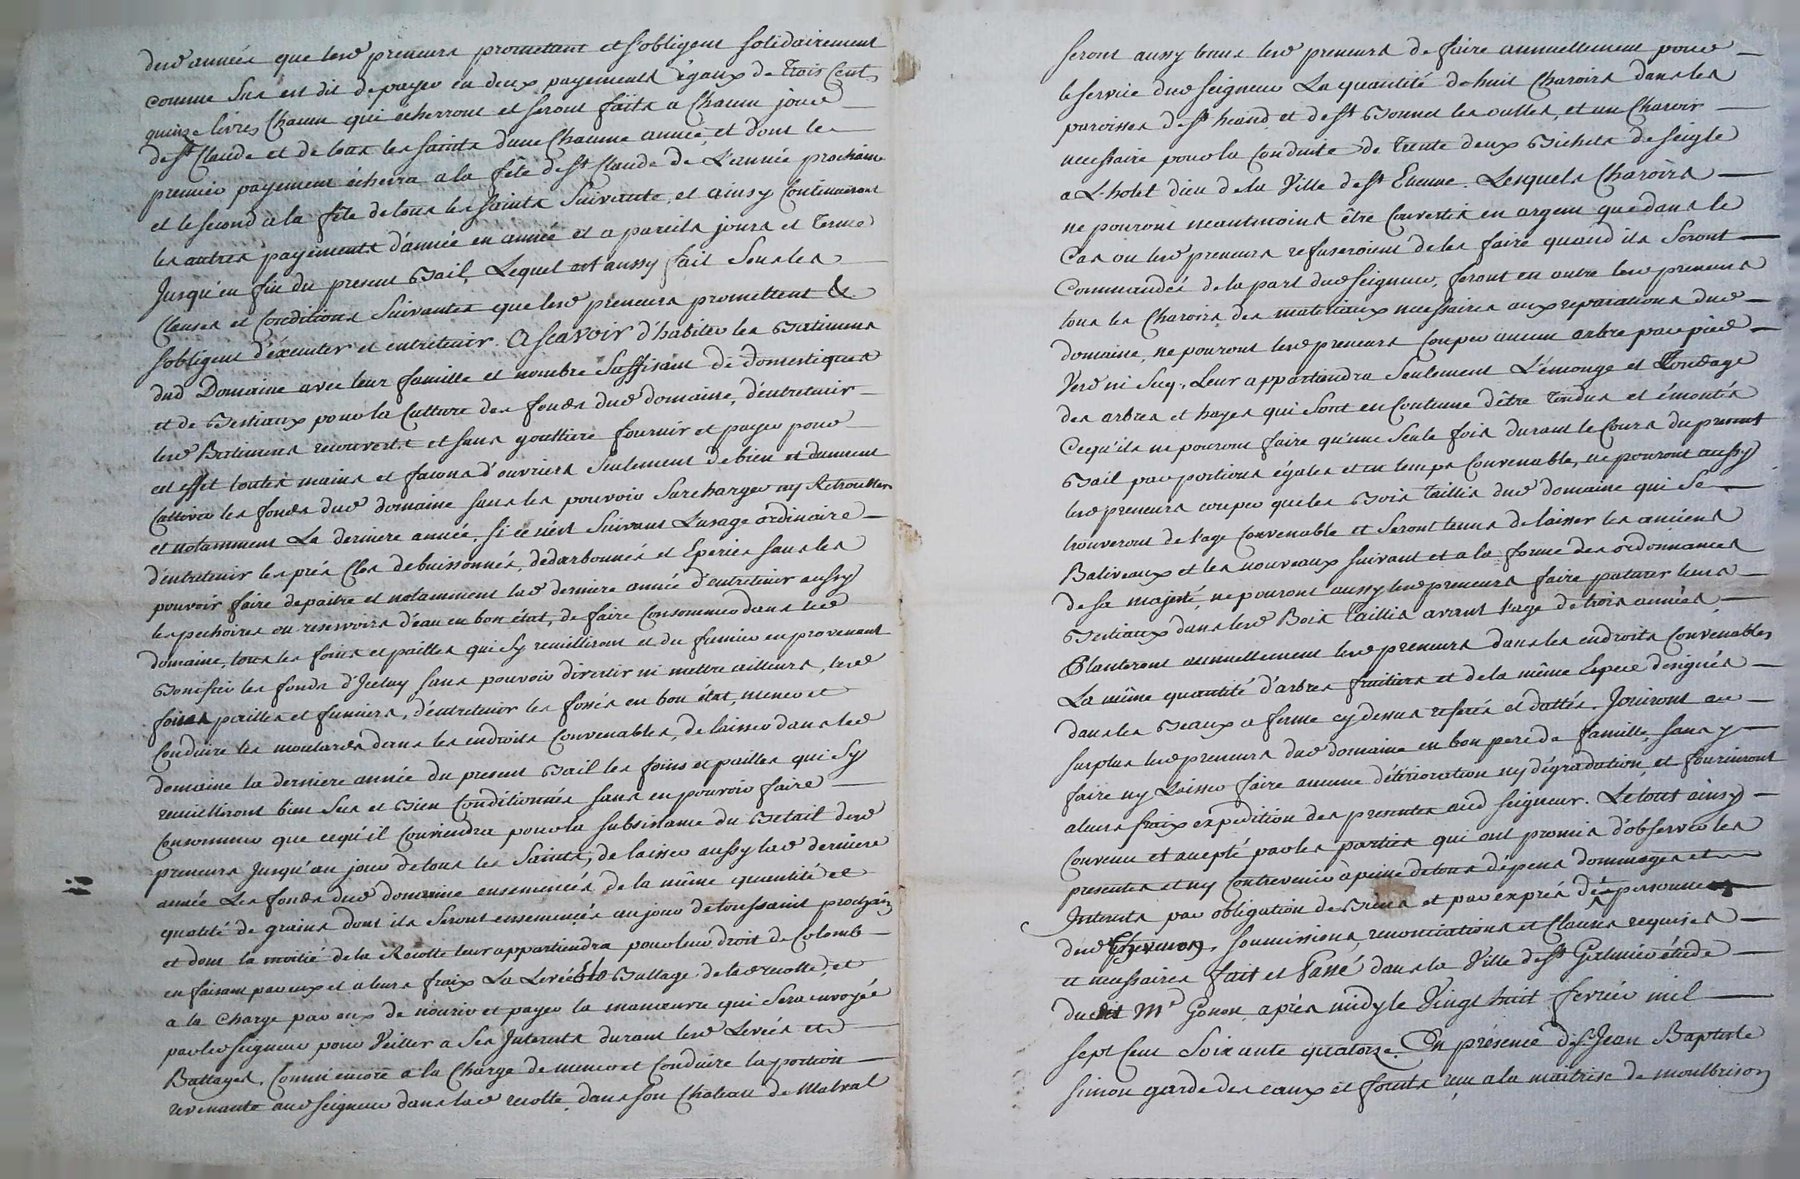 desd. années que lesd. preneurs promettent et s'obligent solidairement
comme Sus est dit de payer en deux payements égaux de trois Cent
quinze livres Chacun qui echerront et seront faits a Chacun jour
de St. Claude et de tous les saints d'une Chacune année, et dont le
premier payement écherra a la fête de St. Claude de L'année prochaine
et le second a la fête de tous les saints Suivante, et ainsy Continueront
les autres payements d'année en année et a pareils jours et terme
Jusqu'en fin du present Bail, Lequel est aussy fait Sous les
Clauses et Conditions Suivantes que lesd. preneurs promettent &
s'obligent d'éxecuter et entretenir. A scavoir d'habiter les Batiments
dud. Domaine avec leur famille et nombre Suffisant de domestiques
et de Bestiaux pour la Culture des fonds dud. domaine, d'entretenir
lesd. Batiments recouverts et sans gouttiere fournir et payer pour
cet effet toutes mains et facons d'ouvriers Seulement de bien et duement
Cultiver les fonds dud. domaine sans les pouvoir Surcharger ny Retroubler
et notamment La derniere année, Si ce n'est Suivant L'usage ordinaire
d'entretenir les prés Clos debuissonnés, dedarbonnés et Eperiés sans les
pouvoir faire depaitre et notamment lad. derniere année d'entretenir aussy
les pechoires ou reservoirs d'eau en bon état, de faire Consommer dans led.
domaine, tous les foins et pailles qui S'y recuilliront et du fumier en provenant
Bonifier les fonds d'Iceluy sans pouvoir divertir ni mettre ailleurs, lesd.
foins pailles et fumiers, d'entretenir les fossés en bon état, mener et
Conduire les moulardes dans les endroits Convenables, de laisser dans led.
domaine la derniere année du present Bail les foins et pailles qui S'y
recuilliront bien Secs et Bien Conditionnés sans en pouvoir faire
Consommer que cequ'il Conviendra pour la subsistance du Betail desd.
preneurs Jusqu'au jour de tous les Saints, de laisser aussy lad. derniere
année Les fonds dud. domaine ensemencés de la même quantité et
qualité de grains dont ils Seront ensemencés au jour de toussaint prochain
et dont la moitié de la Recolte leur appartiendra pour leur droit de Colomb
en faisant par eux et a leurs frais La Levée et Battage de lad. recolte, et
a la Charge par eux de nourir et payer la manœuvre qui Sera envoyée
par led. seigneur pour Veiller a Ses Interets durant lesd. Levées et
Battages, Comm'encore a la Charge de mener et Conduire la portion
revenante aud. seigneur dans lad. recolte, dans son Chateau de Malval
seront aussy tenus lesd. preneurs de faire annuellement pour
le service dud. seigneur La quantité de huit Charoirs dans les
paroisses de St. héand, et de St. Bonnet les oulles, et un Charoir
necessaire pour la Conduite de trente deux Bichets de seigle
a L'hotel dieu de la Ville de St. Etienne. Lesquels Charoirs
ne pouront neantmoins être Convertis en argent que dans le
Cas ou lesd. preneurs refuseroient de les faire quand ils Seront
Commandés de la part dud. seigneur, feront en outre lesd. preneurs
tous les Charois des materiaux necessaires aux reparations dud.
domaine, ne pouront lesd. preneurs Couper aucun arbre par pied
Verd ni Sec, Leur appartiendra Seulement L'émonge et Tondage
des arbres et hayes qui Sont en Coutume d'être Tondus et émontés
Cequ'ils ne pouront faire qu'une Seule fois durant le Cours du present
Bail par portions égales et en temps Convenable, ne pouront aussy
lesd. preneurs couper que les Bois Taillis dud. domaine qui Se
trouveront de l'age Convenable et Seront tenus de laisser les anciens
Baliveaux et les nouveaux suivant et a la forme des ordonnances
de sa majesté, ne pouront aussy lesd. preneurs faire paturer leurs
Bestiaux dans lesd. Bois Taillis avant l'age de trois années,
Planteront annuellement lesd. preneurs dans les endroits Convenables
La même quantité d'arbres fruitiers et de la même Espece designés
dans les Beaux a ferme cy dessus referés et dattés. Jouiront au
surplus lesd. preneurs dud. domaine en bon pere de famille, sans y
faire ny Laisser faire aucune détérioration ny dégradation, et fourniront
a leurs fraix expedition des presentes aud. seigneur. Le tout ainsy
Convenu et accepté par les parties qui ont promis d'observer les
presentes et ny Contrevenir a peine de tous dépens dommages et
Interets par obligation de Biens et par exprés des personnes
dud. Thevenon, soumissions, renonciations et Clauses requises
et necessaires fait et Passé dans la Ville de St. Galmier étude
dudit Me. Gonon, après midy le Vingt huit fevrier mil
sept Cent Soixante quatorze. En présence de Sr. Jean Baptiste
simon garde des eaux et forets reçu a la maitrise de montbrison